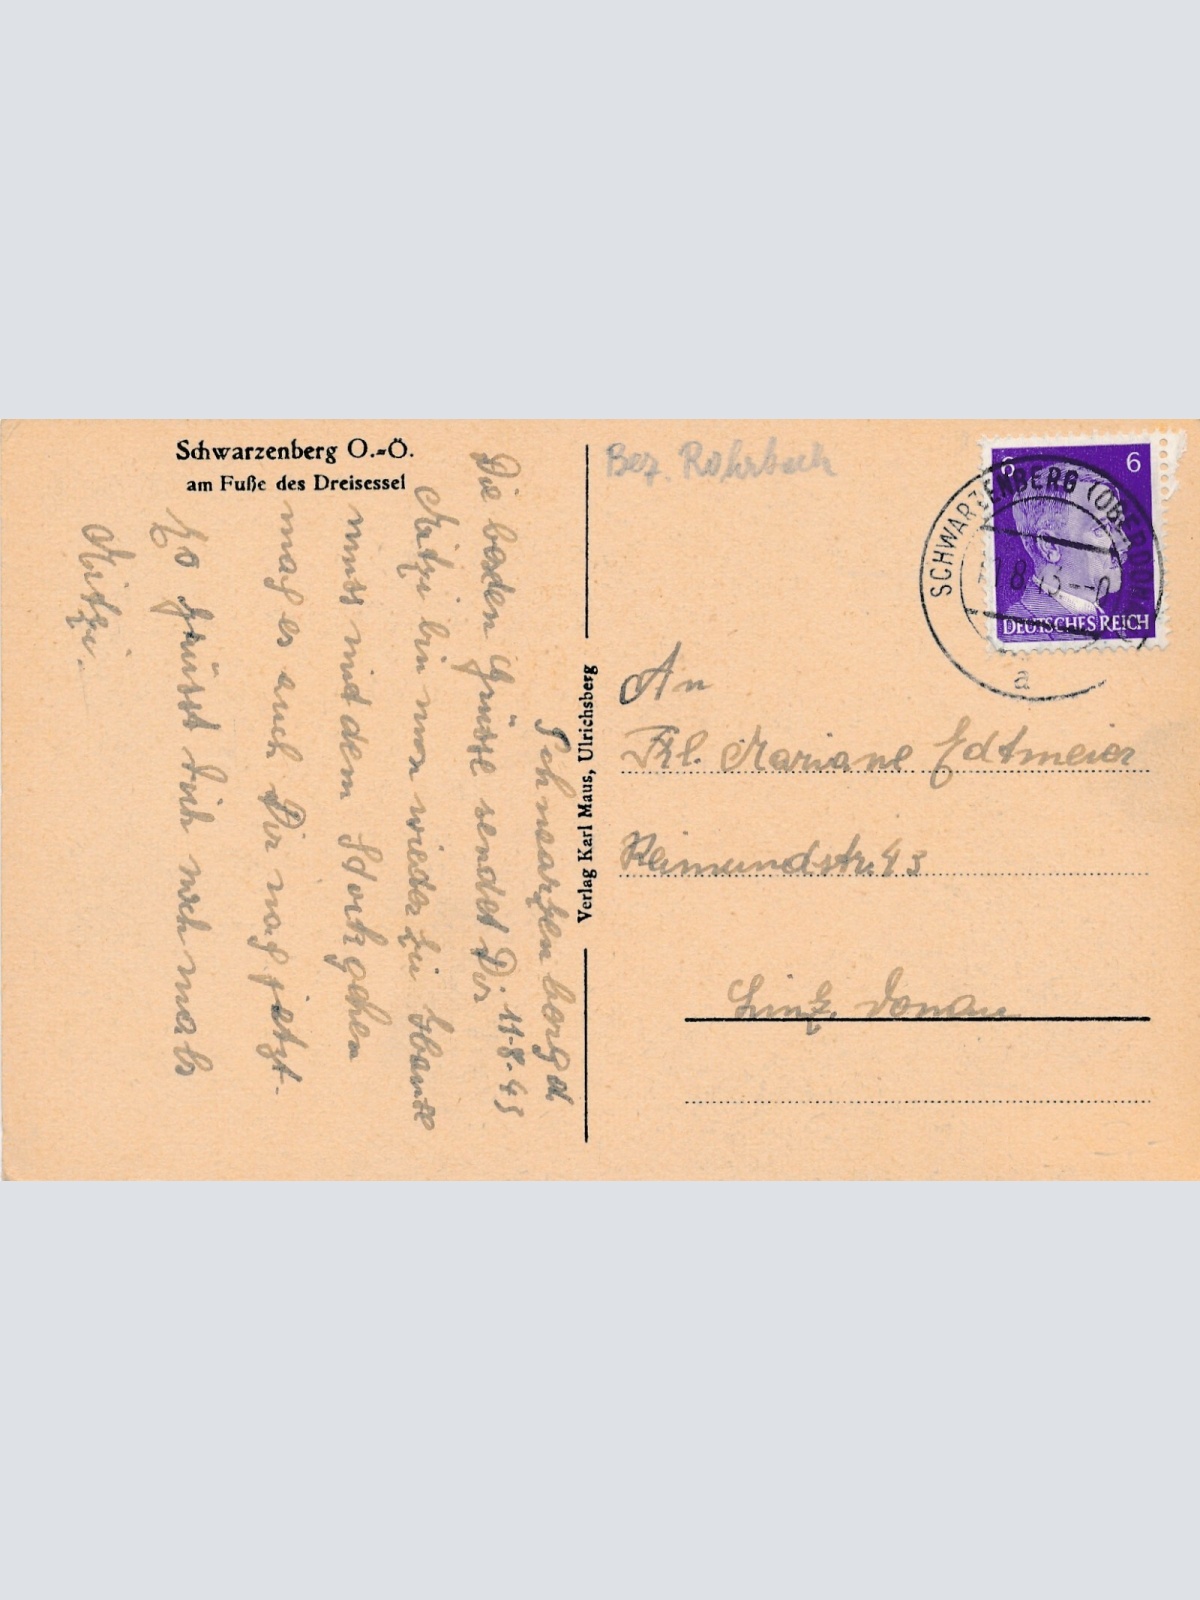 Schwarzenberg O.-Ö.
am Fuße des Dreisessel
Bez. Rohrbach
6 6
DEUTSCHES REICH
SCHWARZENBERG (OBERDONAU)
a
Schwarzenberg d
11.8.43
Die besten Grüsse sendet Dir
Mitzi bin nun wieder zu Hause
muss mit dem Stock gehen
mag es auch Dir jetzt
so grüsst Dich nochmals
Mitzi.
Verlag Karl Maus, Ulrichsberg
An
Frl. Mariane Edtmeier
Reimundstr. 43
Linz. Donau